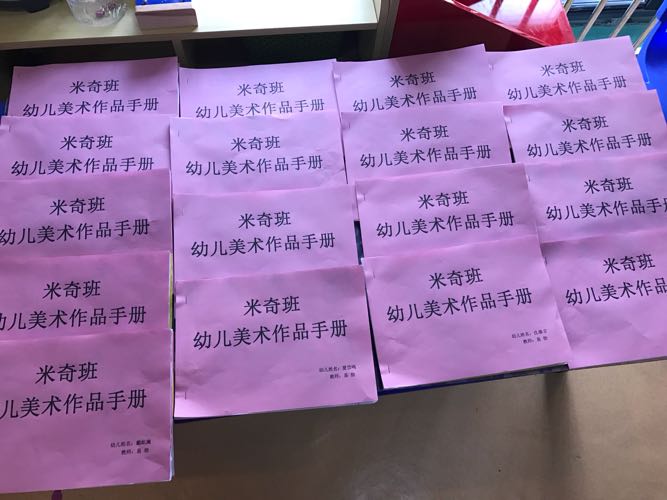 米奇班
幼儿美术作品手册
米奇班
幼儿美术作品手册
米奇班
幼儿美术作品手册
米奇班
幼儿美术作品手册
米奇班
幼儿美术作品手册
米奇班
幼儿美术作品手册
米奇班
幼儿美术作品手册
米奇班
幼儿美术作品手册
米奇班
幼儿美术作品手册
米奇班
幼儿美术作品手册
米奇班
幼儿美术作品手册
米奇班
幼儿美术作品手册
米奇班
幼儿美术作品手册
米奇班
幼儿美术作品手册
幼儿姓名：
教师：
米奇班
幼儿美术作品手册
幼儿姓名：
教师：
米奇班
幼儿美术作品手
米奇班
儿美术作品手册
幼儿姓名：
教师：